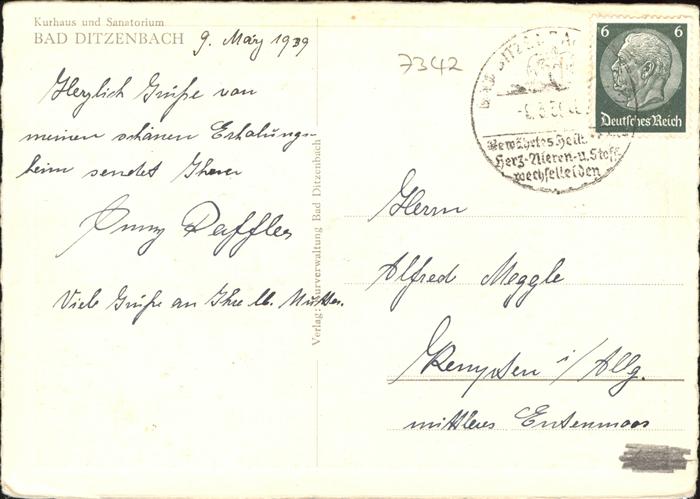 Kurhaus und Sanatorium
BAD DITZENBACH
9. März 1939
Herzlich Grüße von
meinen schönen Erholungs-
heim sendet Ihnen
Anny Daffler
Viele Grüße an Ihre lb. Mutter.
Verlag: Kurverwaltung Bad Ditzenbach
7342
BAD DITZENBA
Bewährtes Heil
Herz-Nieren-u. Stoff
wechselleiden
6 6
Deutsches Reich
Herrn
Alfred Meggle
Kempten i/Allg.
mittleres Entenmoos